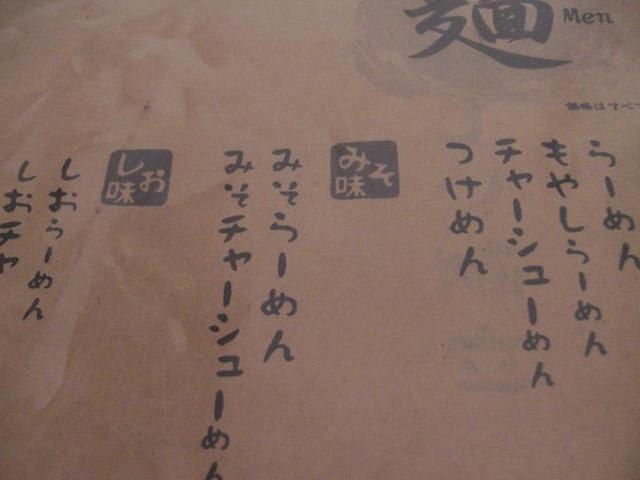 麺 Men
価格はすべて
らーめん
もやしらーめん
チャーシューめん
つけめん
みそ味
みそらーめん
みそチャーシューめん
しお味
しおらーめん
しおチャ